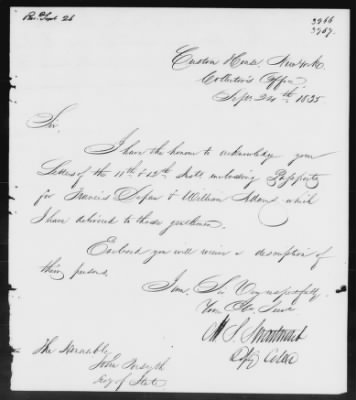 Rec. Sept 26
3966
3967.
Custom House, New York.
Collector's Office
Sept. 24th 1835.
Sir,
I have the honour to acknowledge your
Letters of the 11th & 12th Inst. enclosing Passports
for Francis & William Adams which
I have delivered to those gentlemen.
Enclosed you will receive a description of
their persons.
I am, Sir Very respectfully
Your Obt. Servt
Depy Collr
The Honorable
John Forsyth
Secy of State